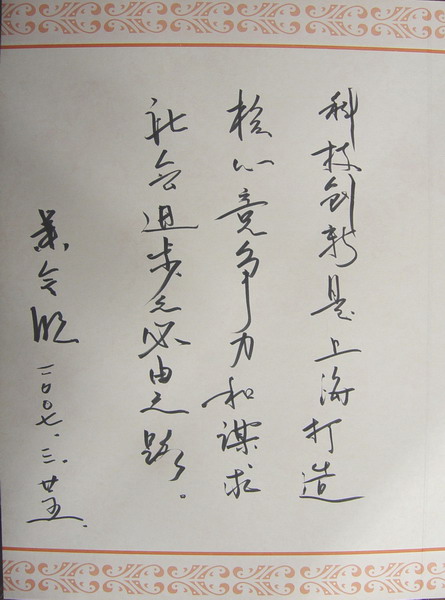 科技创新是上海打造
核心竞争力和谋求
社会进步之必由之路。
二〇〇七.三.廿五.